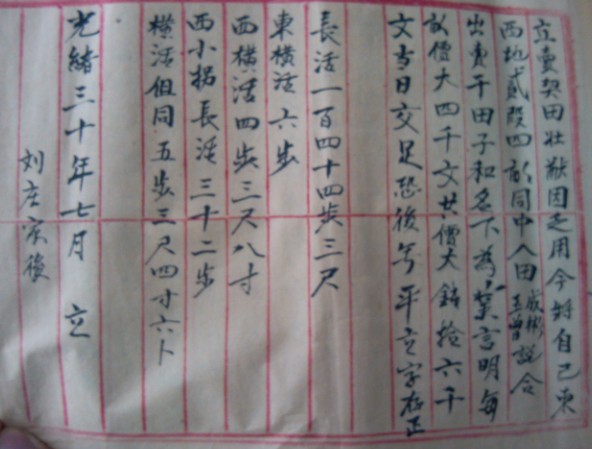 立賣契田壯猷因乏用今將自己東
西地貳段四畝同中人田成彬玉曾說合
出賣于田子和名下為業言明每
畝價大四千文共價大錢拾六千
文当日交足恐後無凴立字存証
長活一百四十四步三尺
東橫活六步
西橫活四步三尺八寸
西小拐長活三十二步
橫活俱同五步三尺四寸六卜
光緒三十年七月 立
刘庄家後